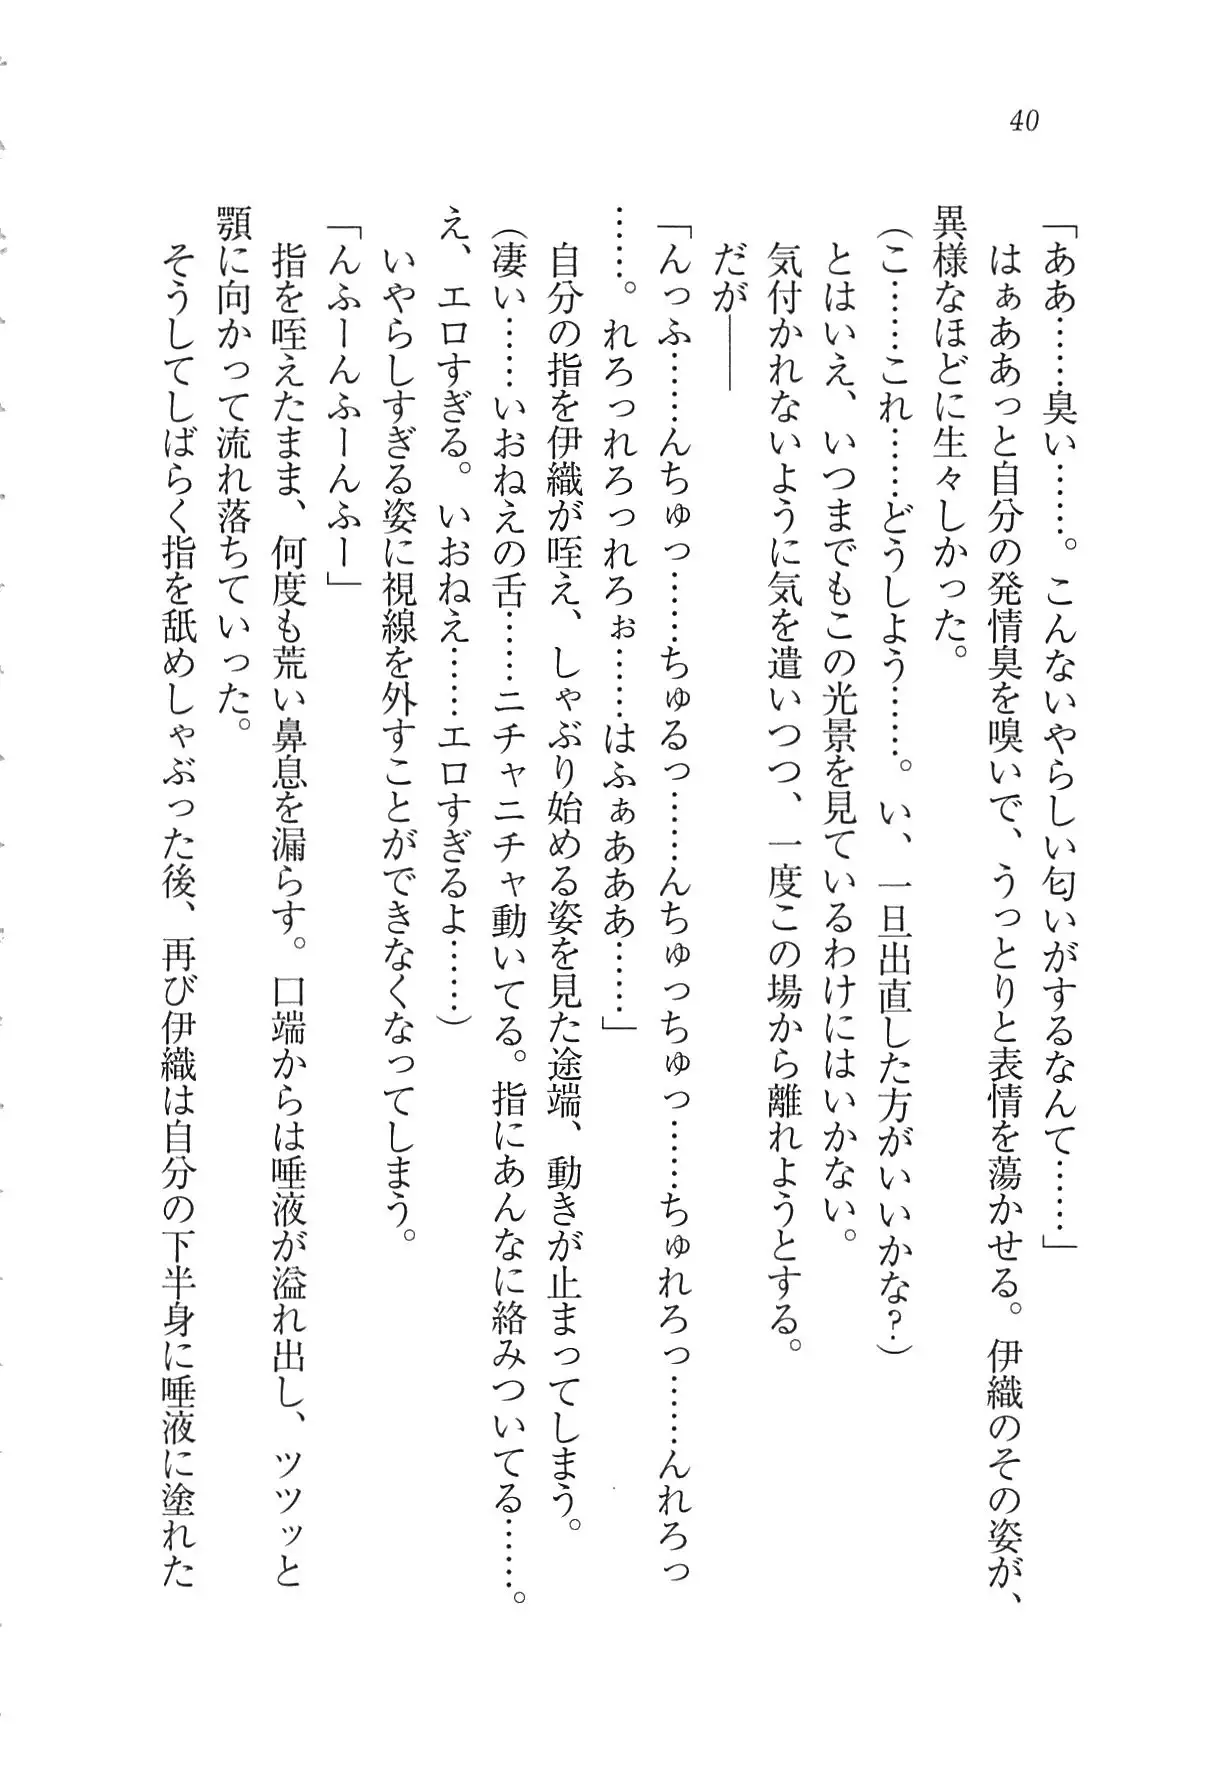 40
「ああ……臭い……。こんないやらしい匂いがするなんて……」
はぁああっと自分の発情臭を嗅いで、うっとりと表情を蕩かせる。伊織のその姿が、
異様なほどに生々しかった。
（こ……これ……どうしよう……。い、一旦出直した方がいいかな？）
とはいえ、いつまでもこの光景を見ているわけにはいかない。
気付かれないように気を遣いつつ、一度この場から離れようとする。
だが――
「んっふ……んちゅっ……ちゅるっ……んちゅっちゅっ……ちゅれろっ……んれろっ
……。れろっれろっれろぉ……はふぁあああ……」
自分の指を伊織が咥え、しゃぶり始める姿を見た途端、動きが止まってしまう。
（凄い……いおねえの舌……ニチャニチャ動いてる。指にあんなに絡みついてる……。
え、エロすぎる。いおねえ……エロすぎるよ……）
いやらしすぎる姿に視線を外すことができなくなってしまう。
「んふーんふーんふー」
指を咥えたまま、何度も荒い鼻息を漏らす。口端からは唾液が溢れ出し、ツツッと
顎に向かって流れ落ちていった。
そうしてしばらく指を舐めしゃぶった後、再び伊織は自分の下半身に唾液に塗れた